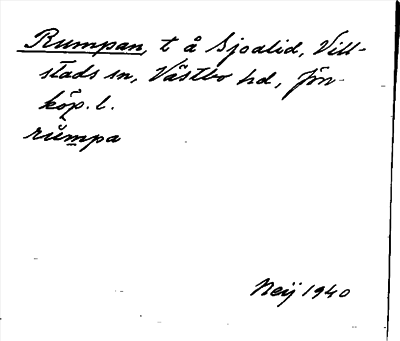 Rumpan, t å Sjoalid, Vill-
stads sn, Västbo hd, Jön-
köp. l.
rumpa
Neij 1940